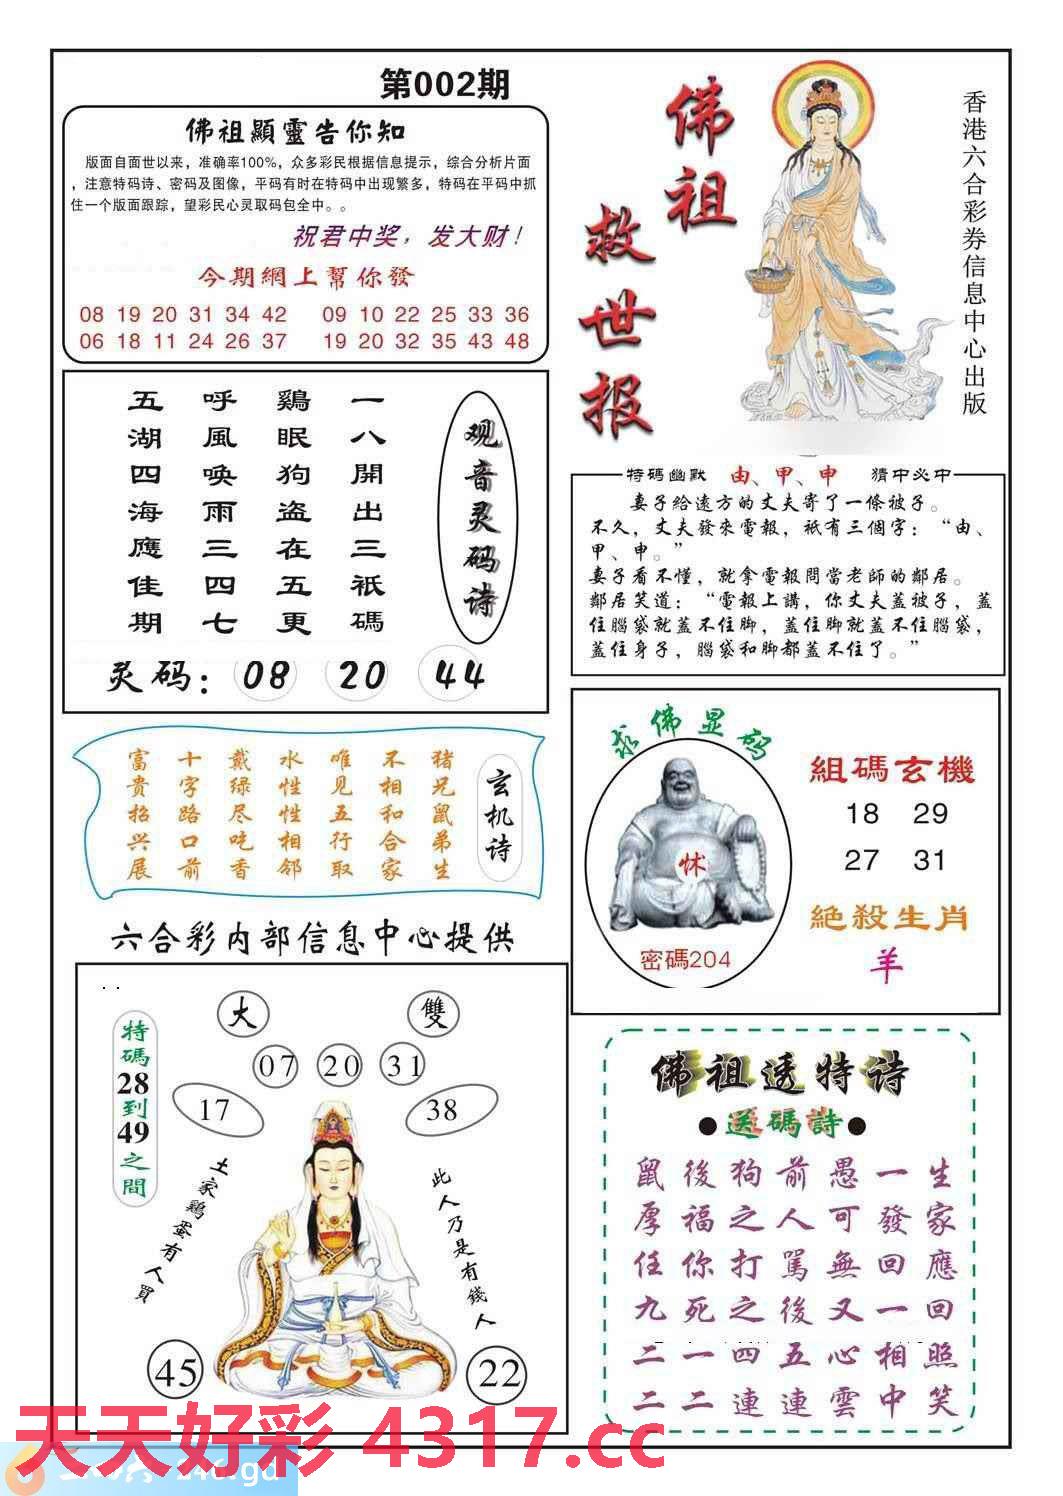 第002期
佛祖顯靈告你知
版面自面世以来，准确率100%，众多彩民根据信息提示，综合分析片面
，注意特码诗、密码及图像，平码有时在特码中出现繁多，特码在平码中抓
住一个版面跟踪，望彩民心灵取码包全中。。
祝君中奖，发大财！
今期網上幫你發
08 19 20 31 34 42 09 10 22 25 33 36
06 18 11 24 26 37 19 20 32 35 43 48
佛祖
救世报
香港六合彩券信息中心出版
观音灵码诗
一八開出三祇碼
鷄眠狗盗在五更
呼風唤雨三四七
五湖四海應佳期
灵码：08 20 44
特碼幽默 由、甲、申 猜中必中
妻子給遠方的丈夫寄了一條被子。
不久，丈夫發來電報，祇有三個字：“由、
甲、申。”
妻子看不懂，就拿電報問當老師的鄰居。
鄰居笑道：“電報上講，你丈夫蓋被子，蓋
住腦袋就蓋不住脚，蓋住脚就蓋不住腦袋，
蓋住身子，腦袋和脚都蓋不住了。”
玄机诗
猪兄鼠弟生
不相和合家
唯见五行取
水性性相邻
戴绿尽吃香
十字路口前
富贵招兴展
求佛显码
密碼204
組碼玄機
18 29
27 31
絕殺生肖
羊
六合彩内部信息中心提供
特碼28到49之間
大 雙
07 20 31
17 38
土家鷄蛋有人買
此人乃是有錢人
45 22
佛祖透特诗
●送碼詩●
鼠後狗前愚一生
厚福之人可發家
任你打罵無回應
九死之後又一回
二一四五心相照
二二連連雲中笑
天天好彩 4317.cc
246.gd